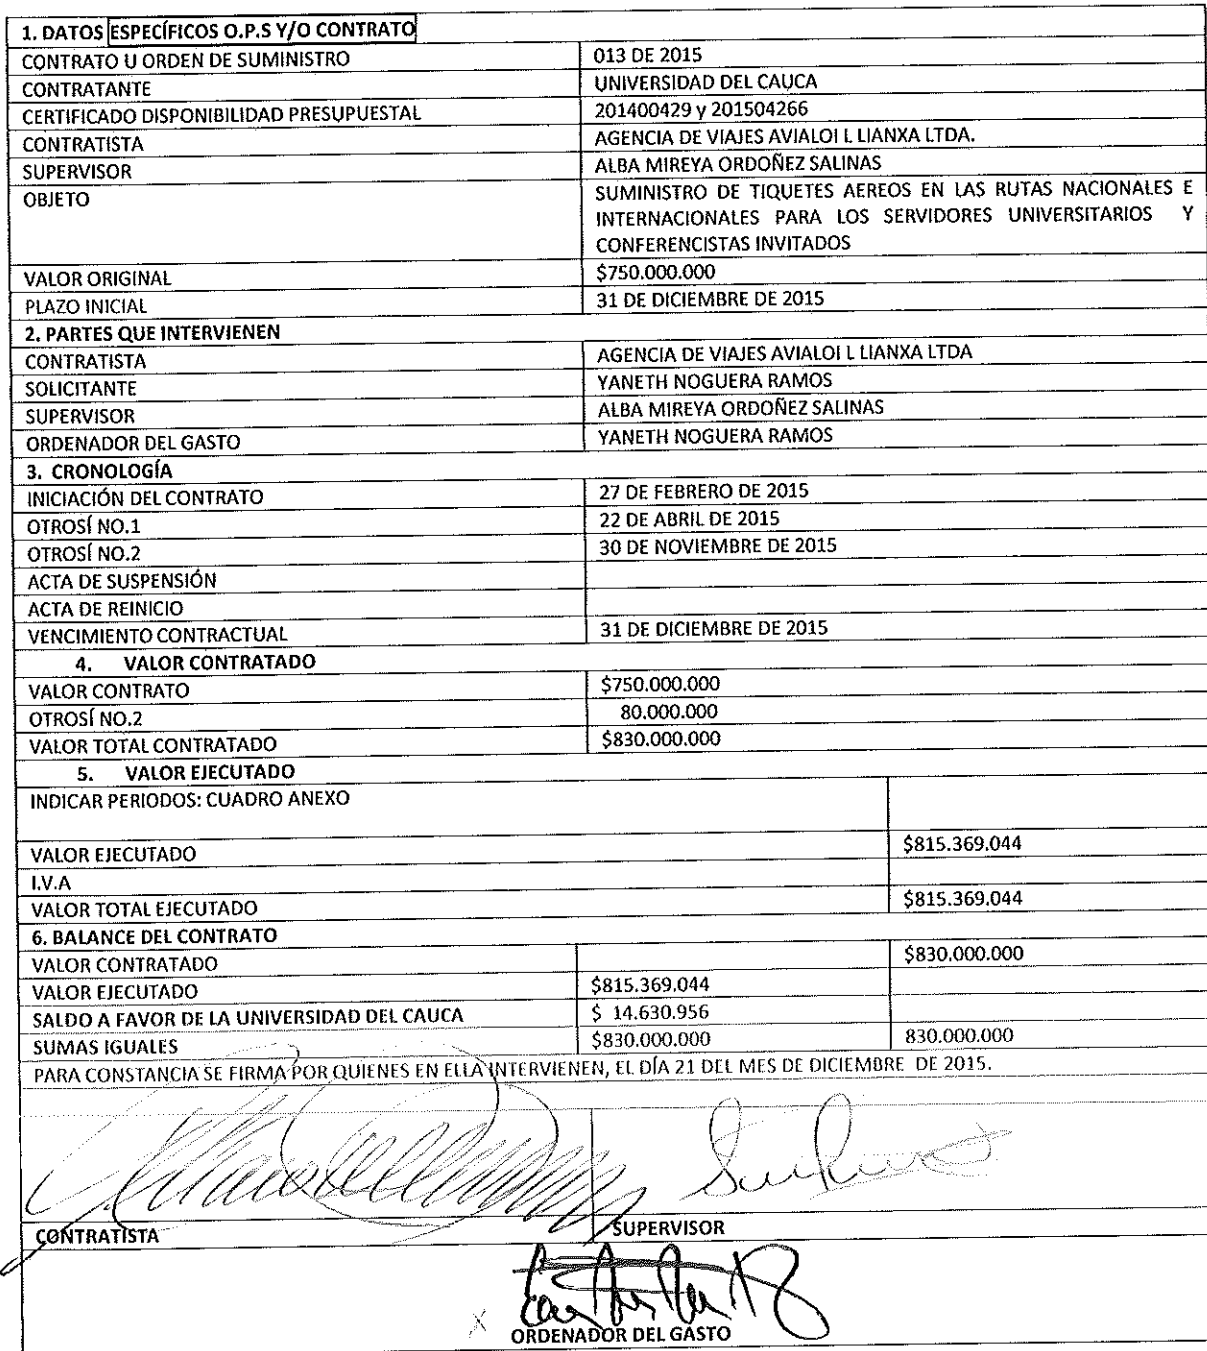 1. DATOS ESPECÍFICOS O.P.S Y/O CONTRATO
CONTRATO U ORDEN DE SUMINISTRO 013 DE 2015
CONTRATANTE UNIVERSIDAD DEL CAUCA
CERTIFICADO DISPONIBILIDAD PRESUPUESTAL 201400429 y 201504266
CONTRATISTA AGENCIA DE VIAJES AVIALOI L LIANXA LTDA.
SUPERVISOR ALBA MIREYA ORDOÑEZ SALINAS
OBJETO SUMINISTRO DE TIQUETES AEREOS EN LAS RUTAS NACIONALES E
INTERNACIONALES PARA LOS SERVIDORES UNIVERSITARIOS Y
CONFERENCISTAS INVITADOS
VALOR ORIGINAL $750.000.000
PLAZO INICIAL 31 DE DICIEMBRE DE 2015
2. PARTES QUE INTERVIENEN
CONTRATISTA AGENCIA DE VIAJES AVIALOI L LIANXA LTDA
SOLICITANTE YANETH NOGUERA RAMOS
SUPERVISOR ALBA MIREYA ORDOÑEZ SALINAS
ORDENADOR DEL GASTO YANETH NOGUERA RAMOS
3. CRONOLOGÍA
INICIACIÓN DEL CONTRATO 27 DE FEBRERO DE 2015
OTROSÍ NO.1 22 DE ABRIL DE 2015
OTROSÍ NO.2 30 DE NOVIEMBRE DE 2015
ACTA DE SUSPENSIÓN
ACTA DE REINICIO
VENCIMIENTO CONTRACTUAL 31 DE DICIEMBRE DE 2015
4. VALOR CONTRATADO
VALOR CONTRATO $750.000.000
OTROSÍ NO.2 80.000.000
VALOR TOTAL CONTRATADO $830.000.000
5. VALOR EJECUTADO
INDICAR PERIODOS: CUADRO ANEXO
VALOR EJECUTADO $815.369.044
I.V.A
VALOR TOTAL EJECUTADO $815.369.044
6. BALANCE DEL CONTRATO
VALOR CONTRATADO $830.000.000
VALOR EJECUTADO $815.369.044
SALDO A FAVOR DE LA UNIVERSIDAD DEL CAUCA $ 14.630.956
SUMAS IGUALES $830.000.000 830.000.000
PARA CONSTANCIA SE FIRMA POR QUIENES EN ELLA INTERVIENEN, EL DÍA 21 DEL MES DE DICIEMBRE DE 2015.
CONTRATISTA SUPERVISOR
X
ORDENADOR DEL GASTO